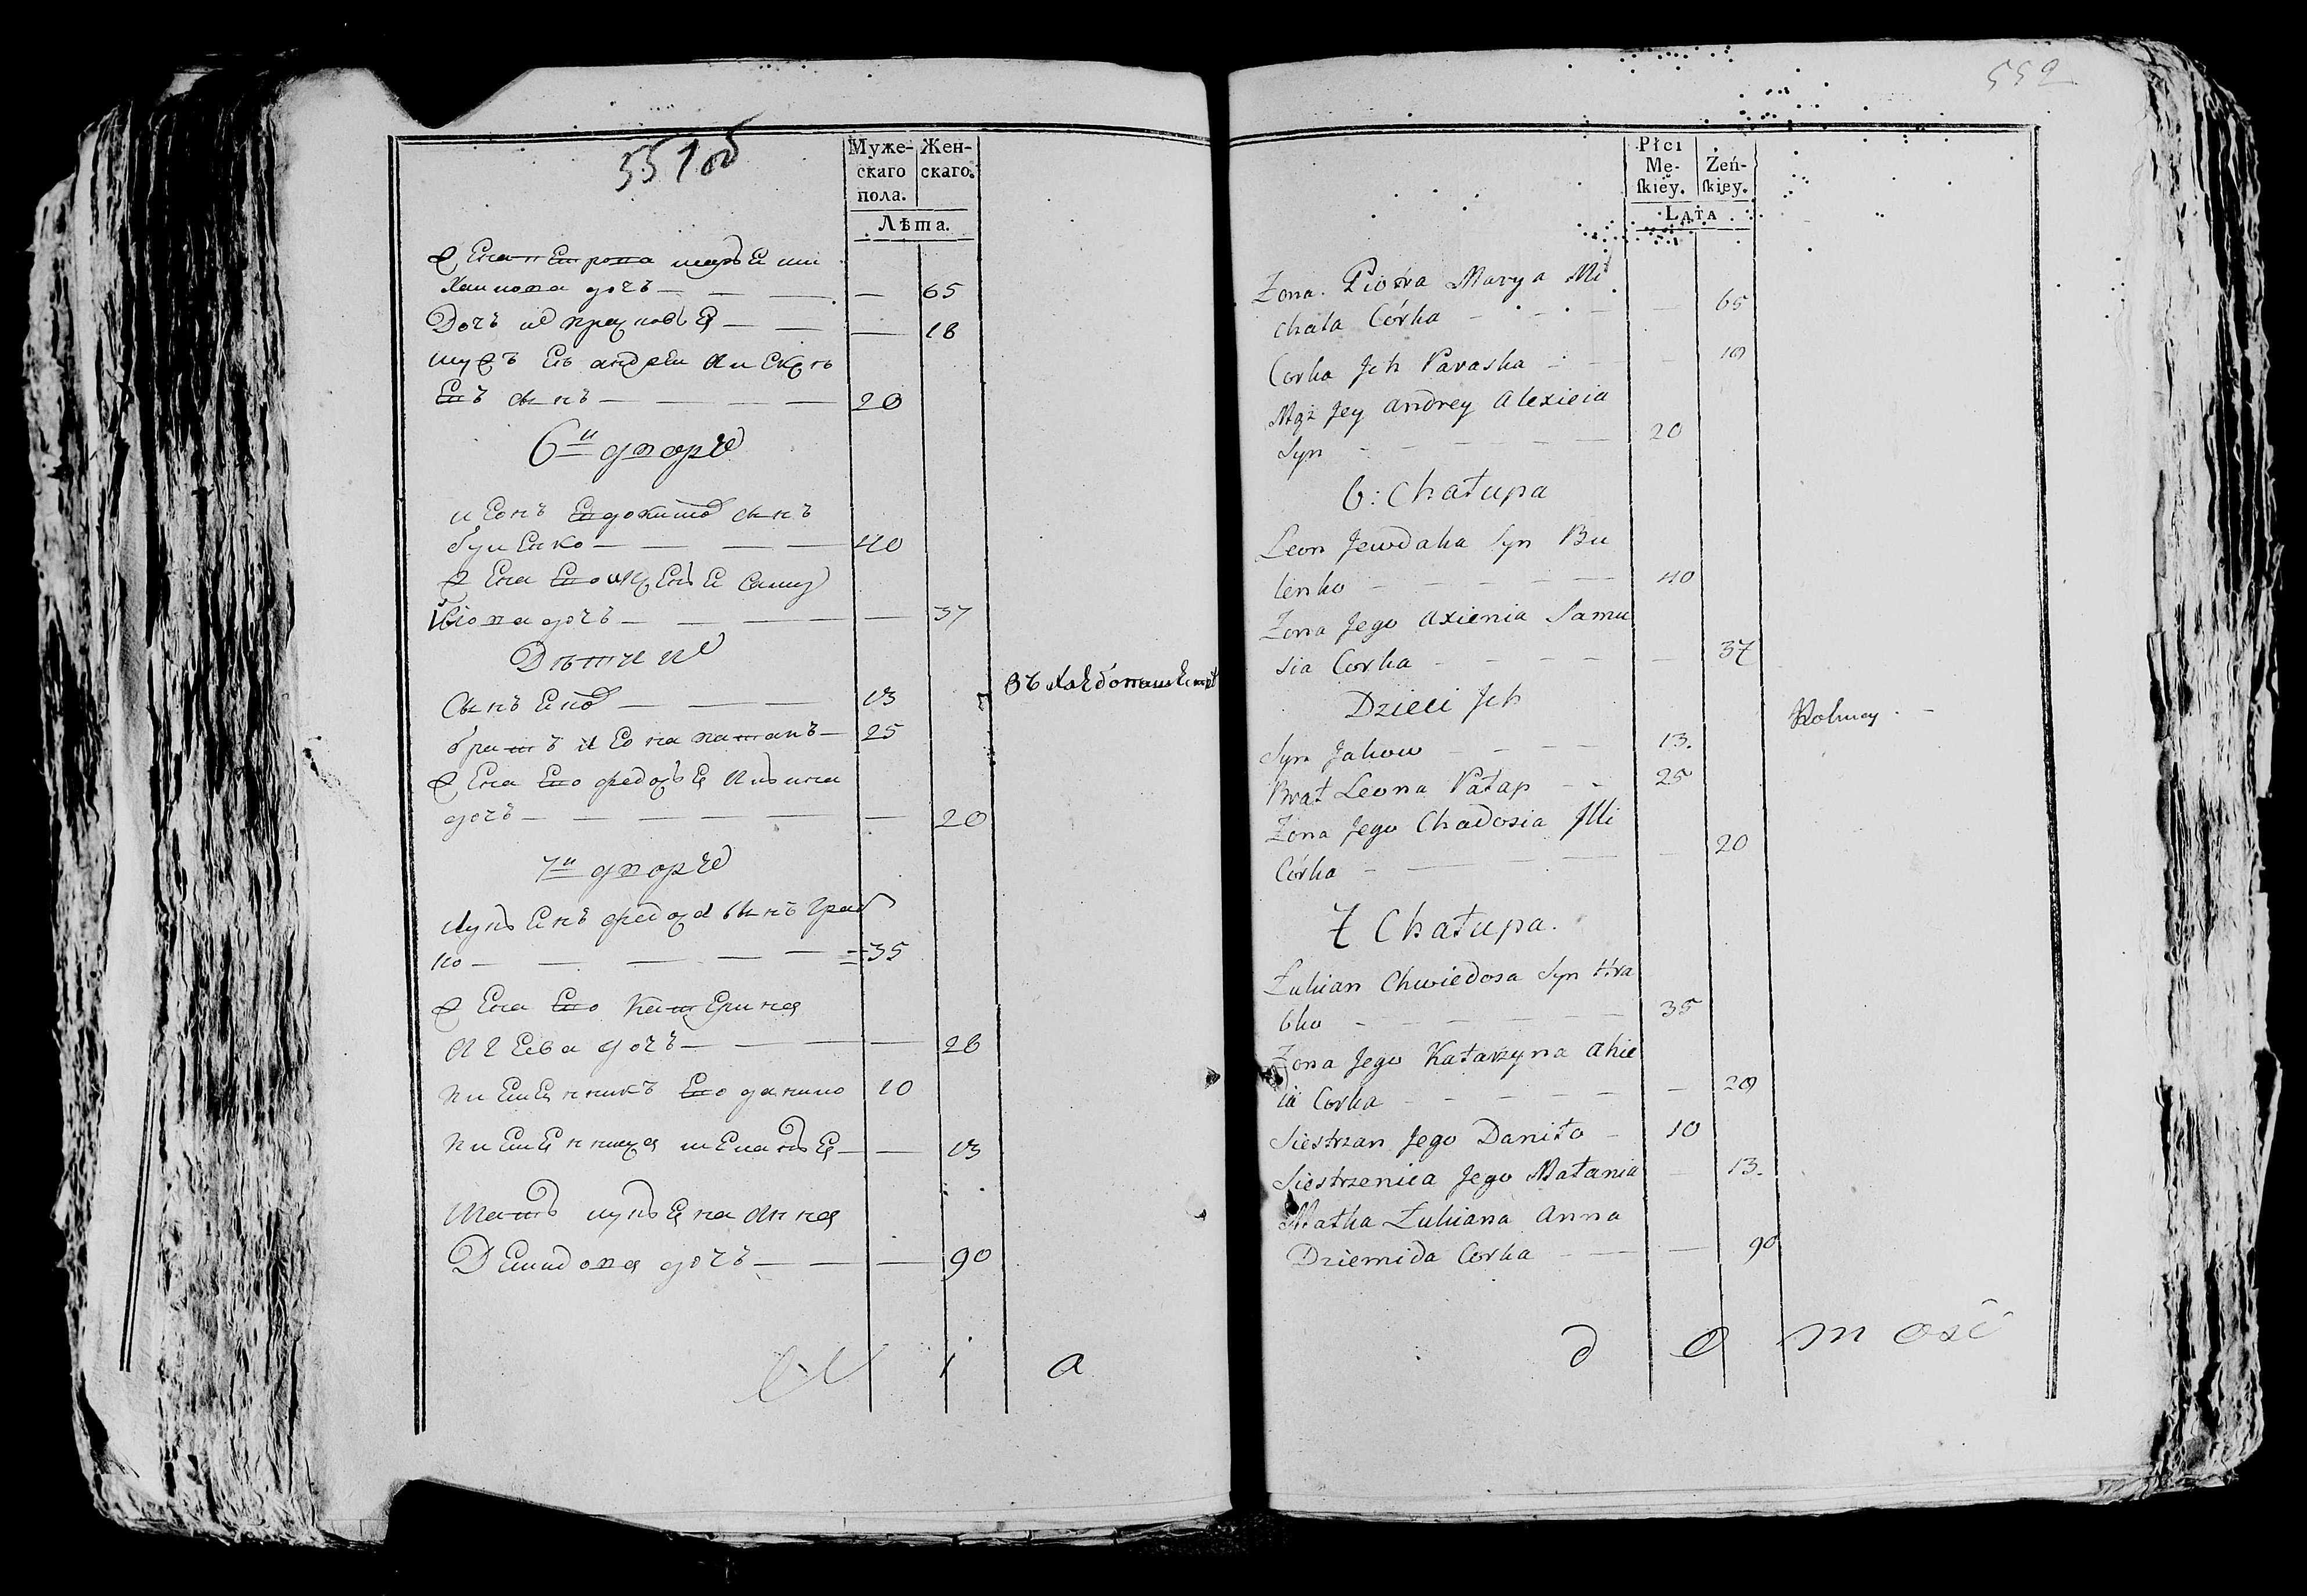 551 об
Муже-
скаго
пола.
Жен-
скаго.
Лѣта.
Жена петрова марья ми
хаилова дочь — — — — 65
Дочь их прасковья — — — 18
мужъ ея андреи алексѣ
евъ сынъ — — — — 20
6й дворъ
леонъ евдокимов сынъ
буленко — — — — 40
жена его аксенья саму
илова дочь — — — — — 37
Дети их
сынъ яков — — — 13
въ хлебопашестве
братъ леона патапъ — 25
жена его федосья ильина
дочь — — — — — — 20
7й дворъ
лукьянъ федоса сынъ граб
ко — — — — — 35
жена его катерина
дочь — — — — 28
племянникъ его данило 10
племянница меланья — — 13
мать лукьяна анна
Демидова дочь — — — 90
W i a
552
Płci
Mę-
ſkiéy.
Żeń-
ſkiey.
Lata
Żona Piotra Marya Mi
chała Córka — — — — 65
Corka Jch Paraska — — 18
Mąż Jey Andrey Alexieia
Syn — — — — — 20
6: Chałupa
Leon Jewdaka Syn Bu
lenko — — — — — 40
Zona Jego Axienia Samu
sia Corka — — — — — 37
Dzieci Jch
Rolnicy
Syn Jakow — — — — 13.
Brat Leona Patap — — 25
Zona Jego Chadosia Jlli
Córka — — — — — 20
7 Chałupa.
Łukian Chwiedosa Syn Hra
bko — — — — — — 35
Zona Jego Katarzyna
Corka — — — — — — 28
Siestrzan Jego Daniło — 10
Siestrzenica Jego Małania — 13.
Matka Łukiana Anna
Dziemida Corka — — — 90
d o mość